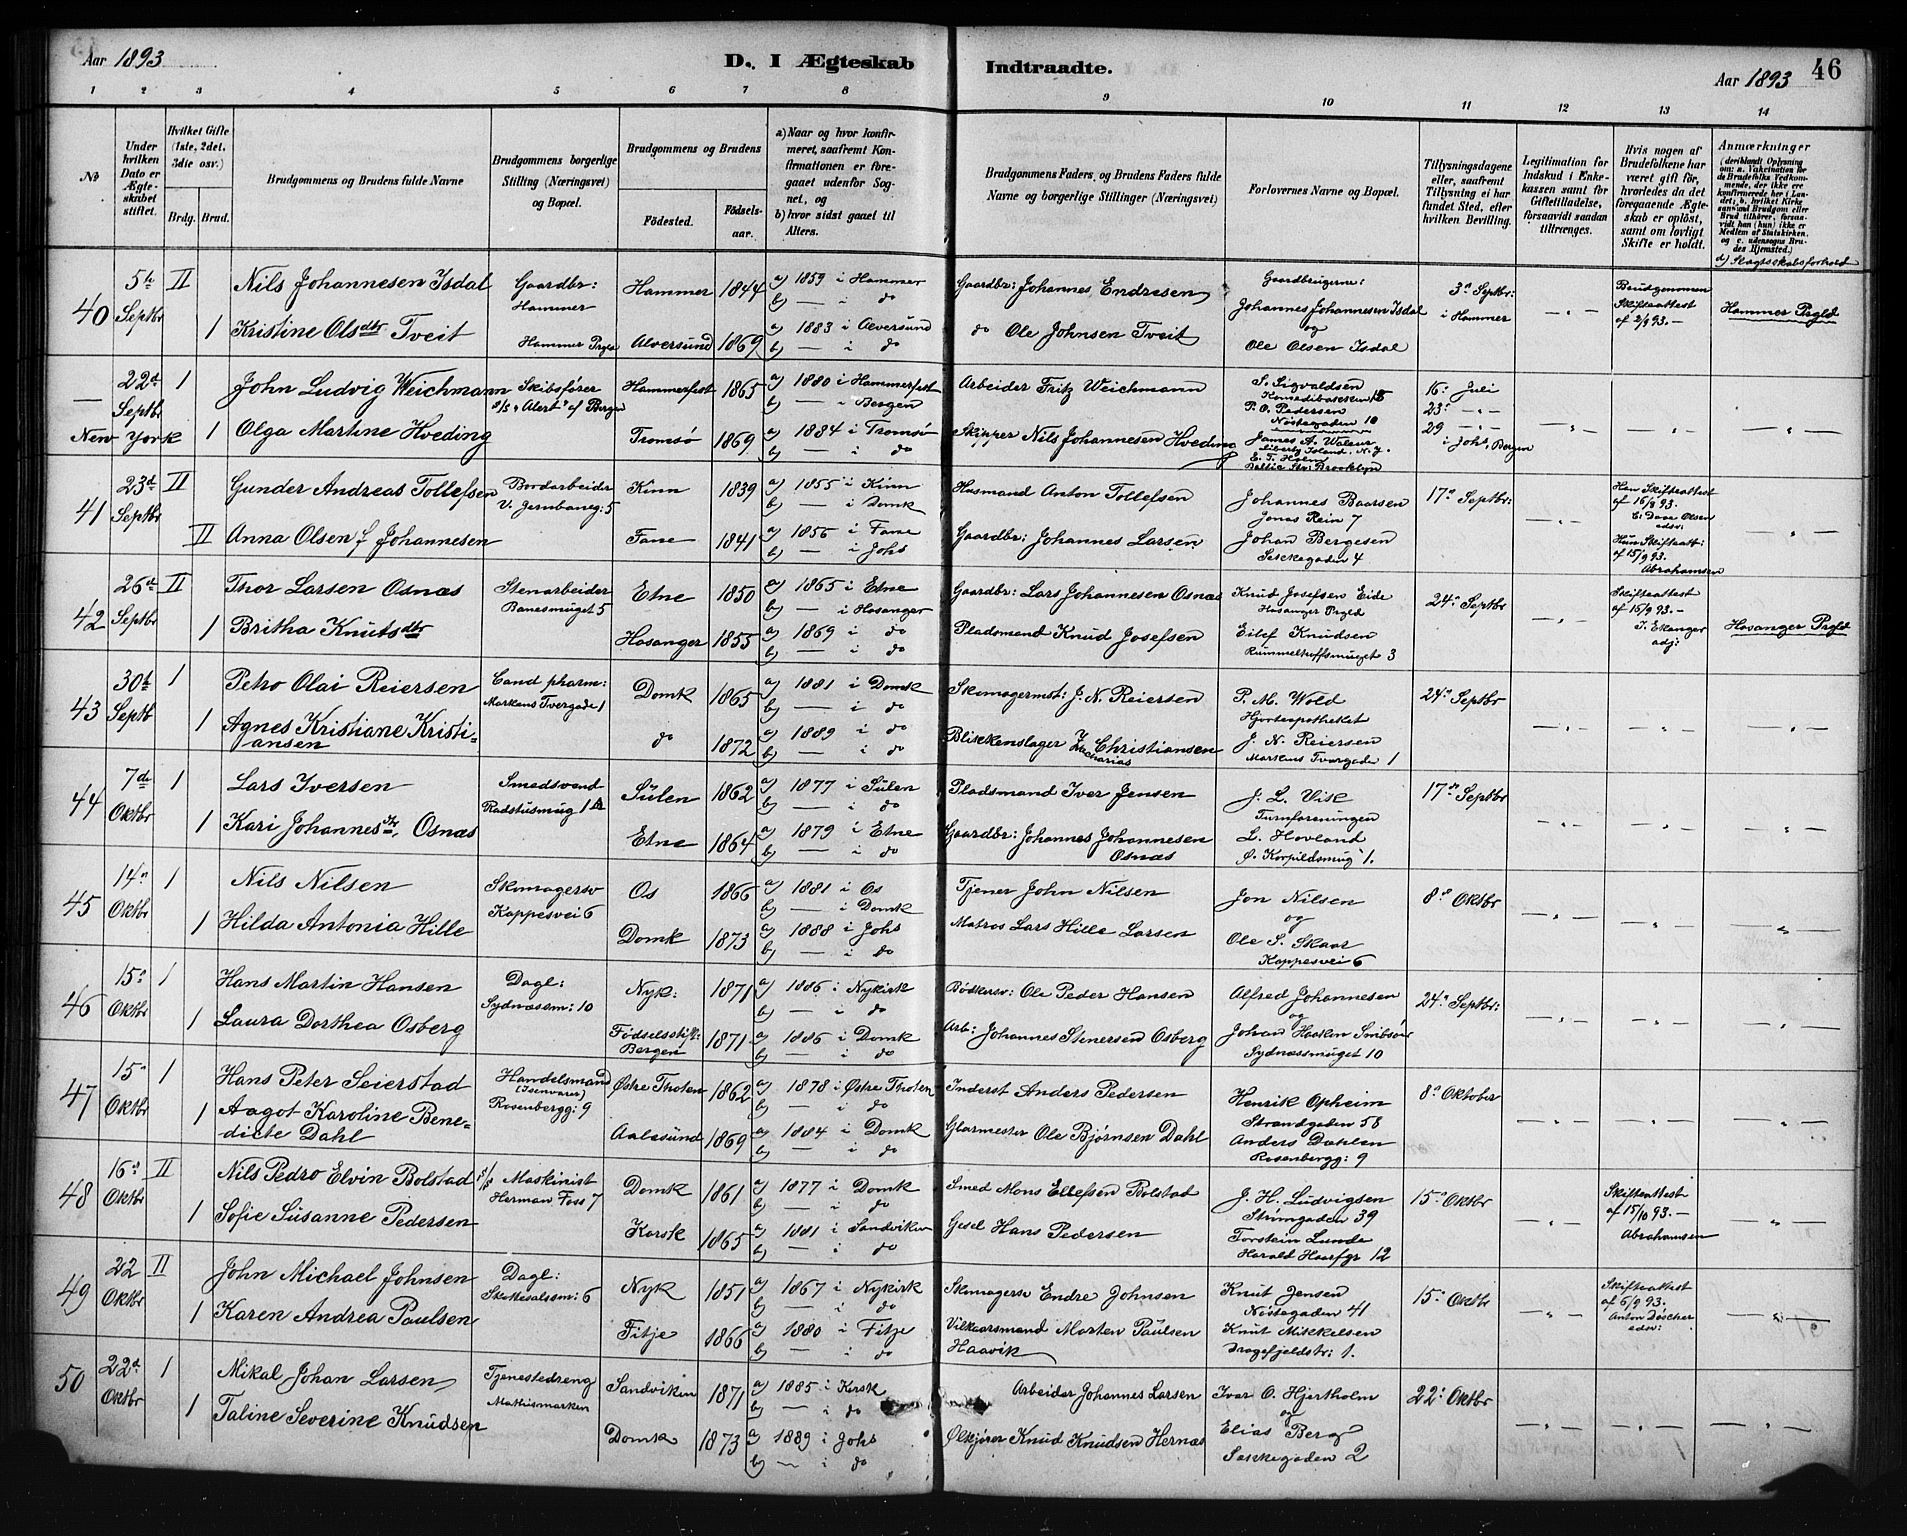 Aar 1893
D. I Ægteskab Indtraadte.
Aar 1893
46
1 2 3 4 5 6 7 8 9 10 11 12 13 14
No
Under hvilken Dato er Ægteskabet stiftet.
Hvilket Gifte (1ste, 2det, 3die osv.)
Brdg. Brud.
Brudgommens og Brudens fulde Navne
Brudgommens borgerlige Stilling (Næringsvei) og Bopæl.
Brudgommens og Brudens
Fødested.
Fødselsaar.
a) Naar og hvor konfirmeret, saafremt Konfirmationen er foregaaet udenfor Sognet, og
b) hvor sidst gaaet til Alters.
Brudgommens Faders, og Brudens Faders fulde Navne og borgerlige Stillinger (Næringsvei)
Forlovernes Navne og Bopæl.
Tillysningsdagene eller, saafremt Tillysning ei har fundet Sted, efter hvilken Bevilling.
Legitimation for Indskud i Enkekassen samt for Giftetilladelse, forsaavidt saadan tiltrænges.
Hvis nogen af Brudefolkene har været gift før, hvorledes da det foregaaende Ægteskab er opløst, samt om lovligt Skifte er holdt.
Anmærkninger
d) Slagtsskabsforhold
40 5te Septbr II Nils Johannesen Isdal Gaardbr: Hammer Hammer 1844 a) 1859 i Hammer b) — i do Gaardbr: Johannes Endresen Gaardbrugerne: Johannes Johannesen Isdal og 3die Septbr: i Hammer — " — Brudgommen Skifteattest af 2/9 93. — Hammer Prgld
1 Kristine Olsdtr Tveit Hammer Prgld Alversund 1869 a) 1883 i Alversund b) — i do do Ole Johnsen Tveit Ole Olsen Isdal
— 22d Septbr 1 John Ludvig Weichmann Skibsfører s/s "Alert" af Bergen Hammerfest 1865 a) 1880 i Hammerfest b) — i Bergen Arbeider Fritz Weichmann S. Sigvaldsen P. O. Pedersen Nøstegaden 10 16: Juli 23: — " — 29 — " — i Johs, Bergen — " —
New York 1 Olga Martine Hveding Tromsø 1869 a) 1884 i Tromsø b) — i do Skipper Nils Johannesen Hveding James A. Liberty Island. N.Y. E. T. Holm Baltic Str: Brooklyn
41 23d Septbr II Gunder Andreas Tollefsen Bordarbeider V. Jernbaneg: 5 Kinn 1839 a) 1855 i Kinn b) — i Domk Husmand Anton Tollefsen Johannes Baarsen Jonas Rein 7 17de Septbr: — " — Han Skifteattest af 16/8 93. E. Daae Olsen edsv.
II Anna Olsen f. Johannesen Fane 1841 a) 1856 i Fane b) — i Johs Gaardbr: Johannes Larsen Johan Bergesen Sækkegaden 4 Hun Skifteatt: af 15/9 93. Abrahamsen
42 26d Septbr II Thor Larsen Osnæs Stenarbeider Banesmuget 5 Etne 1850 a) 1865 i Etne b) — i Hosanger Gaardbr: Lars Johannesen Osnæs Knud Josefsen Eide Hosanger Prgld 24de Septbr — " — Skifteattest af 15/9 93. — J. Ekanger adj: Hosanger Prgld
1 Britha Knutsdtr Hosanger 1855 a) 1869 i do b) — i do Pladsmand Knud Josefsen Eilef Knudsen Rummelhoffsmuget 3
43 30te Septb 1 Petro Olai Reiersen Cand pharm: Markens Tvergade 1 Domk 1865 a) 1881 i Domk b) — i do Skomagermst: J. N. Reiersen P. M. Wold Hjorteapotheket 24de Septbr — " —
1 Agnes Kristiane Kristiansen do 1872 a) 1889 i do b) — i do Blikkenslager Zacharias Christiansen J. N. Reiersen Markens Tvergade 1
44 7de Oktbr 1 Lars Iversen Smedsvend Raadstusmug 1 Sülen 1862 a) 1877 i Sülen b) — i do Pladsmand Iver Jensen J. L. Visk Turnforeningen 17de Septbr — " —
1 Kari Johannesdtr, Osnæs Etne 1864 a) 1879 i Etne b) — i do Gaardbr: Johannes Johannesen Osnæs L. Hovland Ø. Korpildsmug 1.
45 14de Oktbr 1 Nils Nilsen Skomagersv Kappesvei 6 Os 1866 a) 1881 i Os b) — i Domk Tjener John Nilsen Jon Nilsen og 8de Oktbr — " —
1 Hilda Antonia Hille Domk 1873 a) 1888 i Johs b) — i do Matros Lars Hille Larsen Ole S. Skaar Kappesvei 6
46 15de Oktbr 1 Hans Martin Hansen Dagl: Sydnæssm: 10 Nyk: 1871 a) 1886 i Nykirk b) — i do Bødkersv: Ole Peder Hansen Alfred Johannesen og 24de Septbr: — " —
1 Laura Dorthea Osberg Fødselsstift: Bergen 1871 a) 1886 i Domk b) — i do Arb: Johannes Stenersen Osberg Johan Haaken Sydnæssmuget 10
47 15de Oktbr 1 Hans Peter Seierstad Handelsmand (Isenvarer) Rosenbergg: 9 Østre Thoten 1862 a) 1878 i Østre Thoten b) — i do Inderst Anders Pedersen Henrik Opheim Strandgaden 58 8de Oktober — " —
1 Aagot Karoline Benedicte Dahl Aalesund 1869 a) 1884 i Domk b) — i do Glarmester Ole Bjørnsen Dahl Anders Dahlen Rosenbergg: 9
48 16de Oktbr II Nils Pedro Elvin Bolstad Maskinist s/s Herman Foss 7 Domk 1861 a) 1877 i Domk b) — i do Smed Mons Ellefsen Bolstad J. H. Ludvigsen Strømgaden 39 15de Oktbr — " — Skifteattest af 15/10 93. — Abrahamsen
1 Sofie Susanne Pedersen Korsk 1865 a) 1881 i Sandviken b) — i do Gesel Hans Pedersen Torstein Lunde Harald Haarfgr 12
49 22 Oktbr II John Michael Johnsen Dagl: Skottesalssm: 6 Nyk 1851 a) 1867 i Nykirk b) — i do Skomagersv Endre Johnsen Knut Jensen Nøstegaden 41 15de Oktbr — " — Skifteattest af 6/9 93. Anton Døscher edsv:
1 Karen Andrea Paulsen Fitje 1866 a) 1880 i Fitje b) — i do Vilkaarsmand Morten Paulsen Haavik Knut Mikkelsen Dragefjeldstr: 1.
50 22d Oktbr 1 Mikal Johan Larsen Tjenestedreng Mathismarken Sandviken 1871 a) 1885 i Korsk b) — i do Arbeider Johannes Larsen Ivar O. Hjertholm og 22: Oktbr — " —
1 Taline Severine Knudsen Domk 1873 a) 1889 i Johs b) — i do Ølkjører Knud Knudsen Hernæs Elias Berg Sækkegaden 2